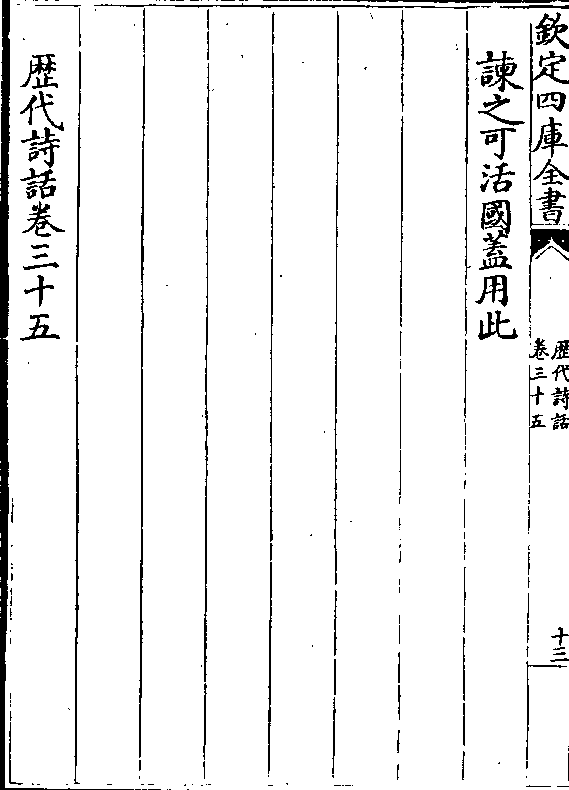 欽定四庫全書
歴代詩話
卷三十五
十三
諫之可活國蓋用此
歴代詩話卷三十五